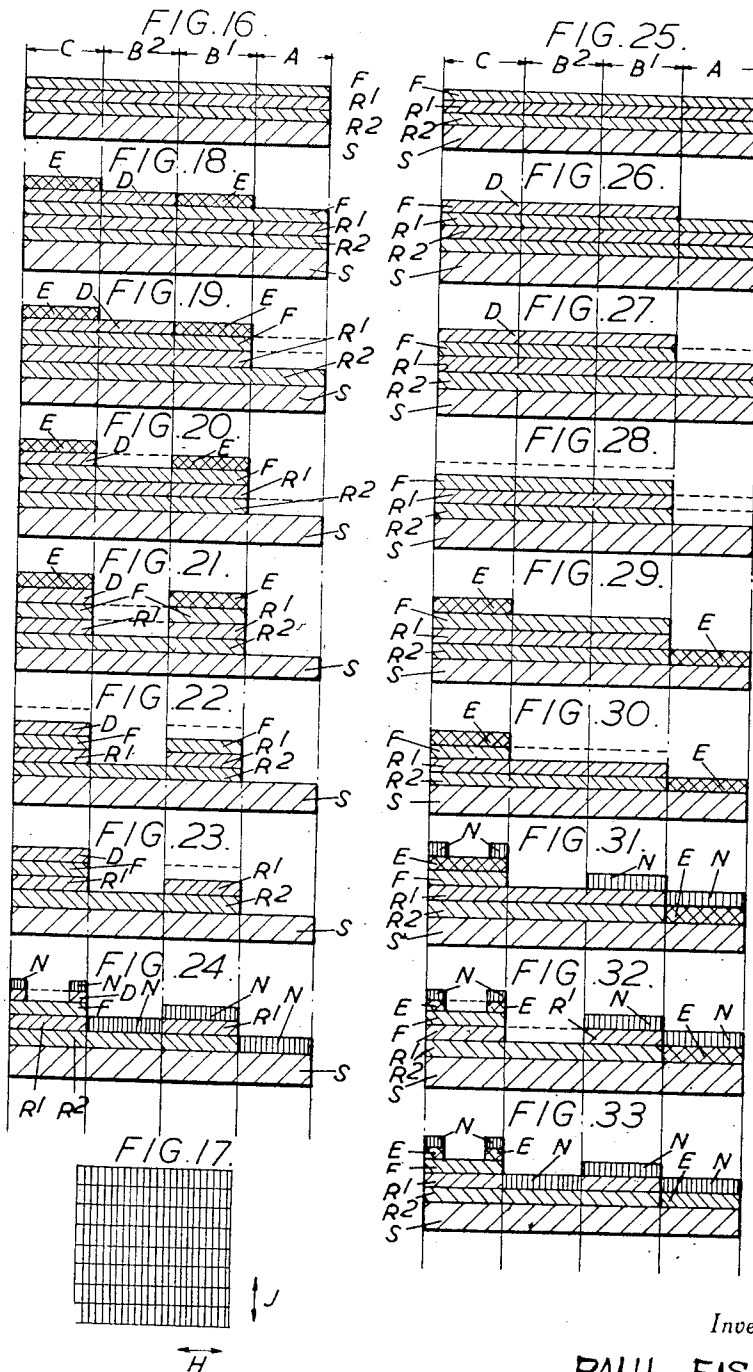 FIG.16.
C B2 B1 A
F
R1
R2
S
FIG.18.
E D E
F
R1
R2
S
FIG.19.
E D E
F
R1
R2
S
FIG.20.
E D E
F
R1
R2
S
FIG.21.
E D F R1
E
R1
R2
S
FIG.22.
D F R1
F
R1
R2
S
FIG.23.
D F R1
R1
R2
S
FIG.24.
N N N N N
D
F
R1
R1 R2
S
FIG.17.
J
H
FIG.25.
C B2 B1 A
F
R1
R2
S
FIG.26.
D
F
R1
R2
S
FIG.27.
D
F
R1
R2
S
FIG.28.
F
R1
R2
S
FIG.29.
E
F
R1
R2
S
E
FIG.30.
E
F
R1
R2
S
E
FIG.31.
N N E N
E
F
R1
R2
S
FIG.32.
N E R1 N E N
E
F
R1
R2
S
FIG.33
N E N N E N
E
F
R1
R2
S
Inve
PAUL EIS